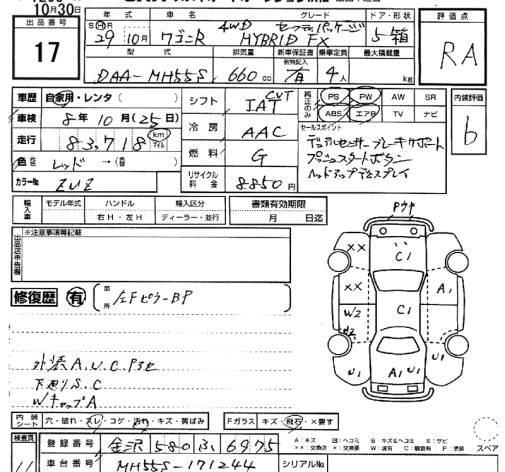 10月30日
出品番号
17
年式 車名 グレード ドア・形状
S H R
29年10月 ワゴンR 4WD セーフティパッケージ HYBRID FX 5 箱
評価点
RA
型式 排気量 新車保証書 有無記入 乗車定員 最大積載量
DAA-MH55S 660cc 有 4人 kg
車歴 自家用・レンタ( )
車検 8年10月(25日)
走行 83,718 km マイル
色 レッド→( )
カラーNo ZUZ
シフト CVT IAT
冷房 AAC
燃料 G
リサイクル料金 8850円
純正のみ
PS PW AW SR
ABS エアB TV ナビ
内装評価
b
セールスポイント
デュアルセンサーブレーキサポート
プッシュスタートボタン
ヘッドアップディスプレイ
輸入車 モデル年式 ハンドル 輸入区分 書類有効期限
年 右H・左H ディーラー・並行 月 日迄
出品店申告欄
※注意事項等記載
修復歴 有 箇所 左FピラーBP
外装A,U,C,Pヨセ
下廻りS,C
WキャップA
Pウキ
××
C1
××
A1
W2
C1
U1
A1
U1
U1
スペア
内装シート 穴・破れ・スレ・コゲ・汚れ・キズ・黄ばみ
Fガラス キズ・飛石・×要す
A:キズ U:凹ヘコミ B:キズ&ヘコミ S:サビ
××:交換済 ×:要交換 W:波有 C:腐食有 P:塗装
検査員
登録番号 金沢 580 ろ 6975
車台番号 MH55S-171244
シリアルNo